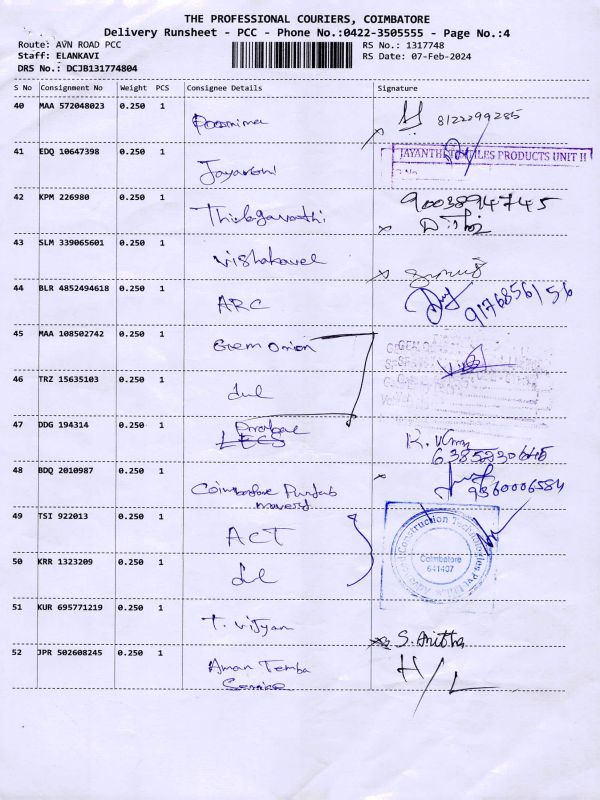 THE PROFESSIONAL COURIERS, COIMBATORE
Delivery Runsheet - PCC - Phone No.:0422-3505555 - Page No.:4
Route: AVN ROAD PCC RS No.: 1317748
Staff: ELANKAVI RS Date: 07-Feb-2024
DRS No.: DCJB131774804
S No Consignment No Weight PCS Consignee Details Signature
40 MAA 572048023 0.250 1 Poornima 8122299285
41 EDQ 10647398 0.250 1 JAYANTHI TEXTILES PRODUCTS UNIT II
42 KPM 226980 0.250 1 9003894745
43 SLM 339065601 0.250 1 Vishakavel
44 BLR 4852494618 0.250 1 ARC 9176856156
45 MAA 108502742 0.250 1 Gem Onion
46 TRZ 15635103 0.250 1
47 DDG 194314 0.250 1
48 BDQ 2010987 0.250 1 Coimbatore Punjab 9360006584
movers
49 TSI 922013 0.250 1 ACT
50 KRR 1323209 0.250 1 Coimbatore
641407
51 KUR 695771219 0.250 1 T. Vijayan S. Anitha
52 JPR 502608245 0.250 1 Aman Temba H/L
Service